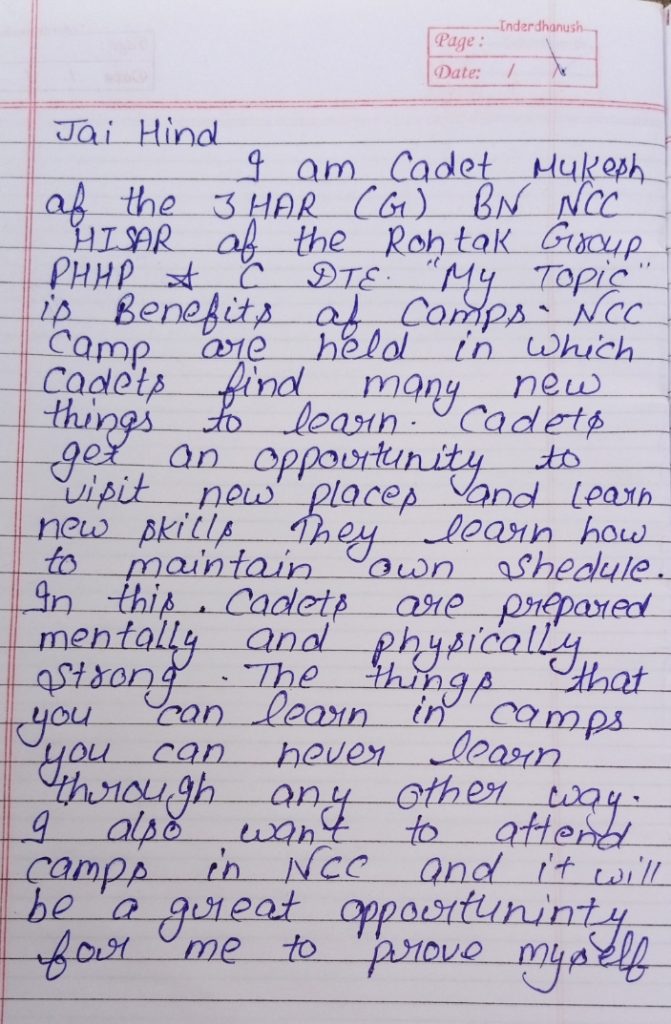 Inderdhanush
Page :
Date: / /
Jai Hind
I am Cadet Mukesh
of the 3 HAR (G) BN NCC
HISAR of the Rohtak Group
PHHP & C DTE. "My Topic"
is Benefits of Camps. NCC
Camp are held in which
Cadets find many new
things to learn. Cadets
get an opportunity to
visit new places and learn
new skills They learn how
to maintain own Shedule.
In this. Cadets are prepared
mentally and physically
Strong. The things that
you can learn in camps
you can never learn
through any other way.
I also want to attend
camps in NCC and it will
be a great opportuninty
for me to prove myself